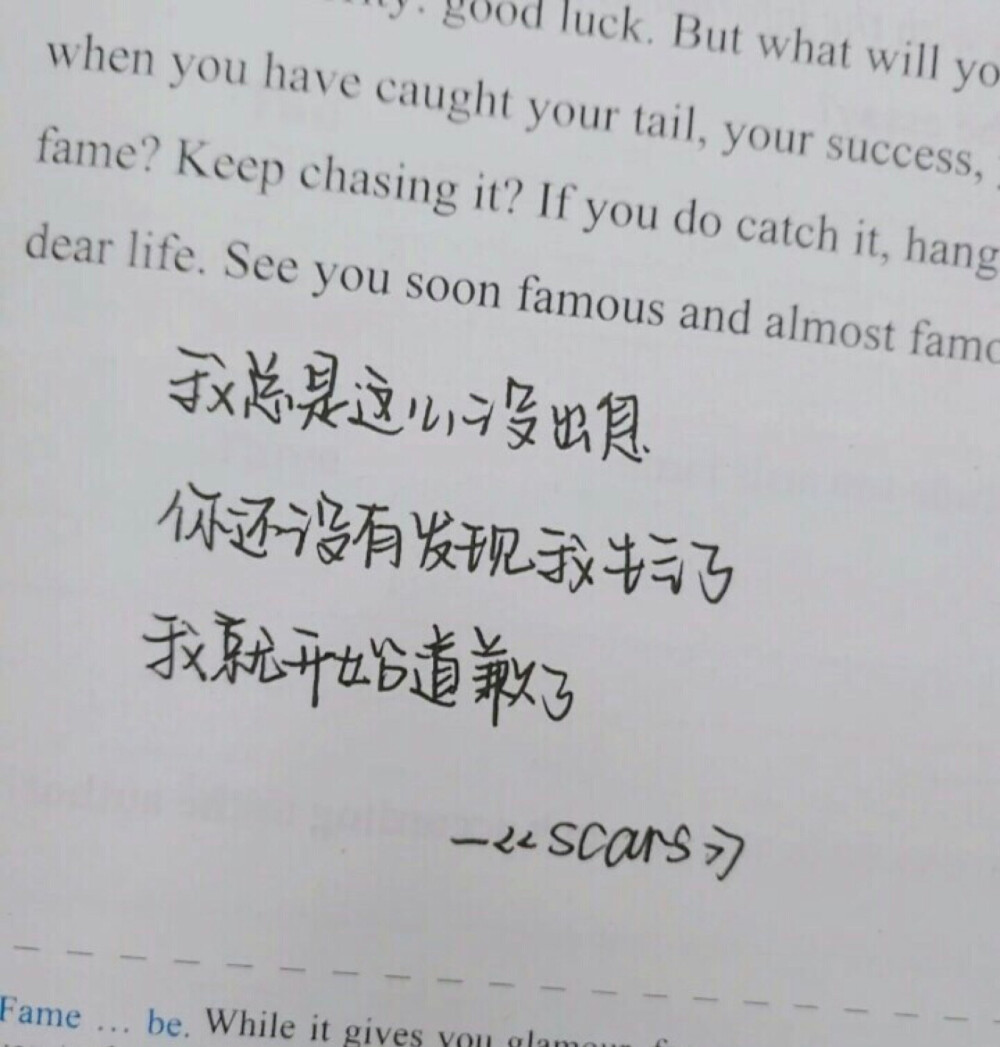 good luck. But what will yo
when you have caught your tail, your success,
fame? Keep chasing it? If you do catch it, hang
dear life. See you soon famous and almost famo
我总是这么没出息
你还没有发现我生气了
我就开始道歉了
—《scars》
Fame … be. While it gives you glamour